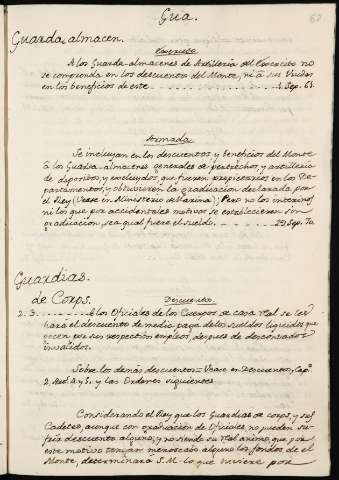 Gua.
62
Guarda-almacen.
Exercito
A los Guarda-almacenes de Artilleria del Exercito no
se comprenda en los descuentos del Monte, ni à sus Viudas
en los beneficios de este 1. Sep. 61.
Armada
Se incluyan en los descuentos y beneficios del Monte
à los Guarda-almacenes generales de pertrechos, y artilleria
de depositos, y excluidos, que fueren propietarios en los De-
partamentos, y obtuvieren la graduacion declarada por
el Rey (Vease in Ministerio de Marina); Pero no los interinos,
ni los que por accidentales motivos se establecieren sin
graduacion, sea qual fuere el sueldo. 29 Sep. 70
Guardias.
de Corps.
Descuento
2. 3. A los Oficiales de los Cuerpos de casa Real se les
harà el descuento de media paga de los sueldos liquidos que
gocen por sus respectivos empleos, despues de descontados
invalidos.
Sobre los demàs descuentos: Vease en Descuentos, Capº
2. Medª y S. y las Ordenes siguientes
Considerando el Rey que los Guardias de corps, y sus
Cadetes, aunque con graduacion de Oficiales, no pueden su-
frir descuento alguno, y no siendo su real animo, que por
este motivo tengan menoscabo alguno los fondos de el
Monte, determinarà S.M. lo que tuviere por